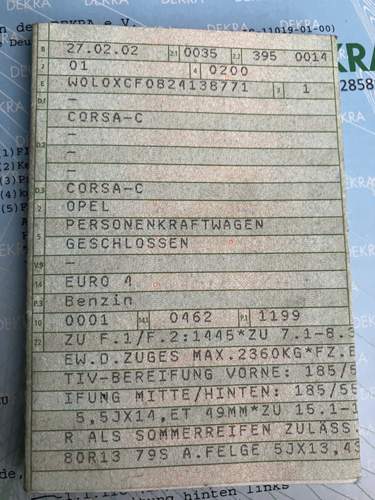 B 27.02.02 2.1 0035 2.2 395 0014
J 01 4 0200
E WOLOXCF0824138771 3 1
D.1 –
CORSA-C
–
D.2 –
–
D.3 CORSA-C
2 OPEL
5 PERSONENKRAFTWAGEN
GESCHLOSSEN
V.9 –
14 EURO 4
P.3 Benzin
10 0001 14.1 0462 P.1 1199
22 ZU F.1/F.2:1445*ZU 7.1-8.3
EW.D.ZUGES MAX.2360KG*FZ.E
TIV-BEREIFUNG VORNE: 185/5
IFUNG MITTE/HINTEN: 185/55
5,5JX14,ET 49MM*ZU 15.1-1
R ALS SOMMERREIFEN ZULÄSS.
80R13 79S A.FELGE 5JX13,43
DEKRA e.V.
-11019-01-00)
KRA
2858
(1)
(2)
(3)
(4)
(5)
hinten links
DEKRA